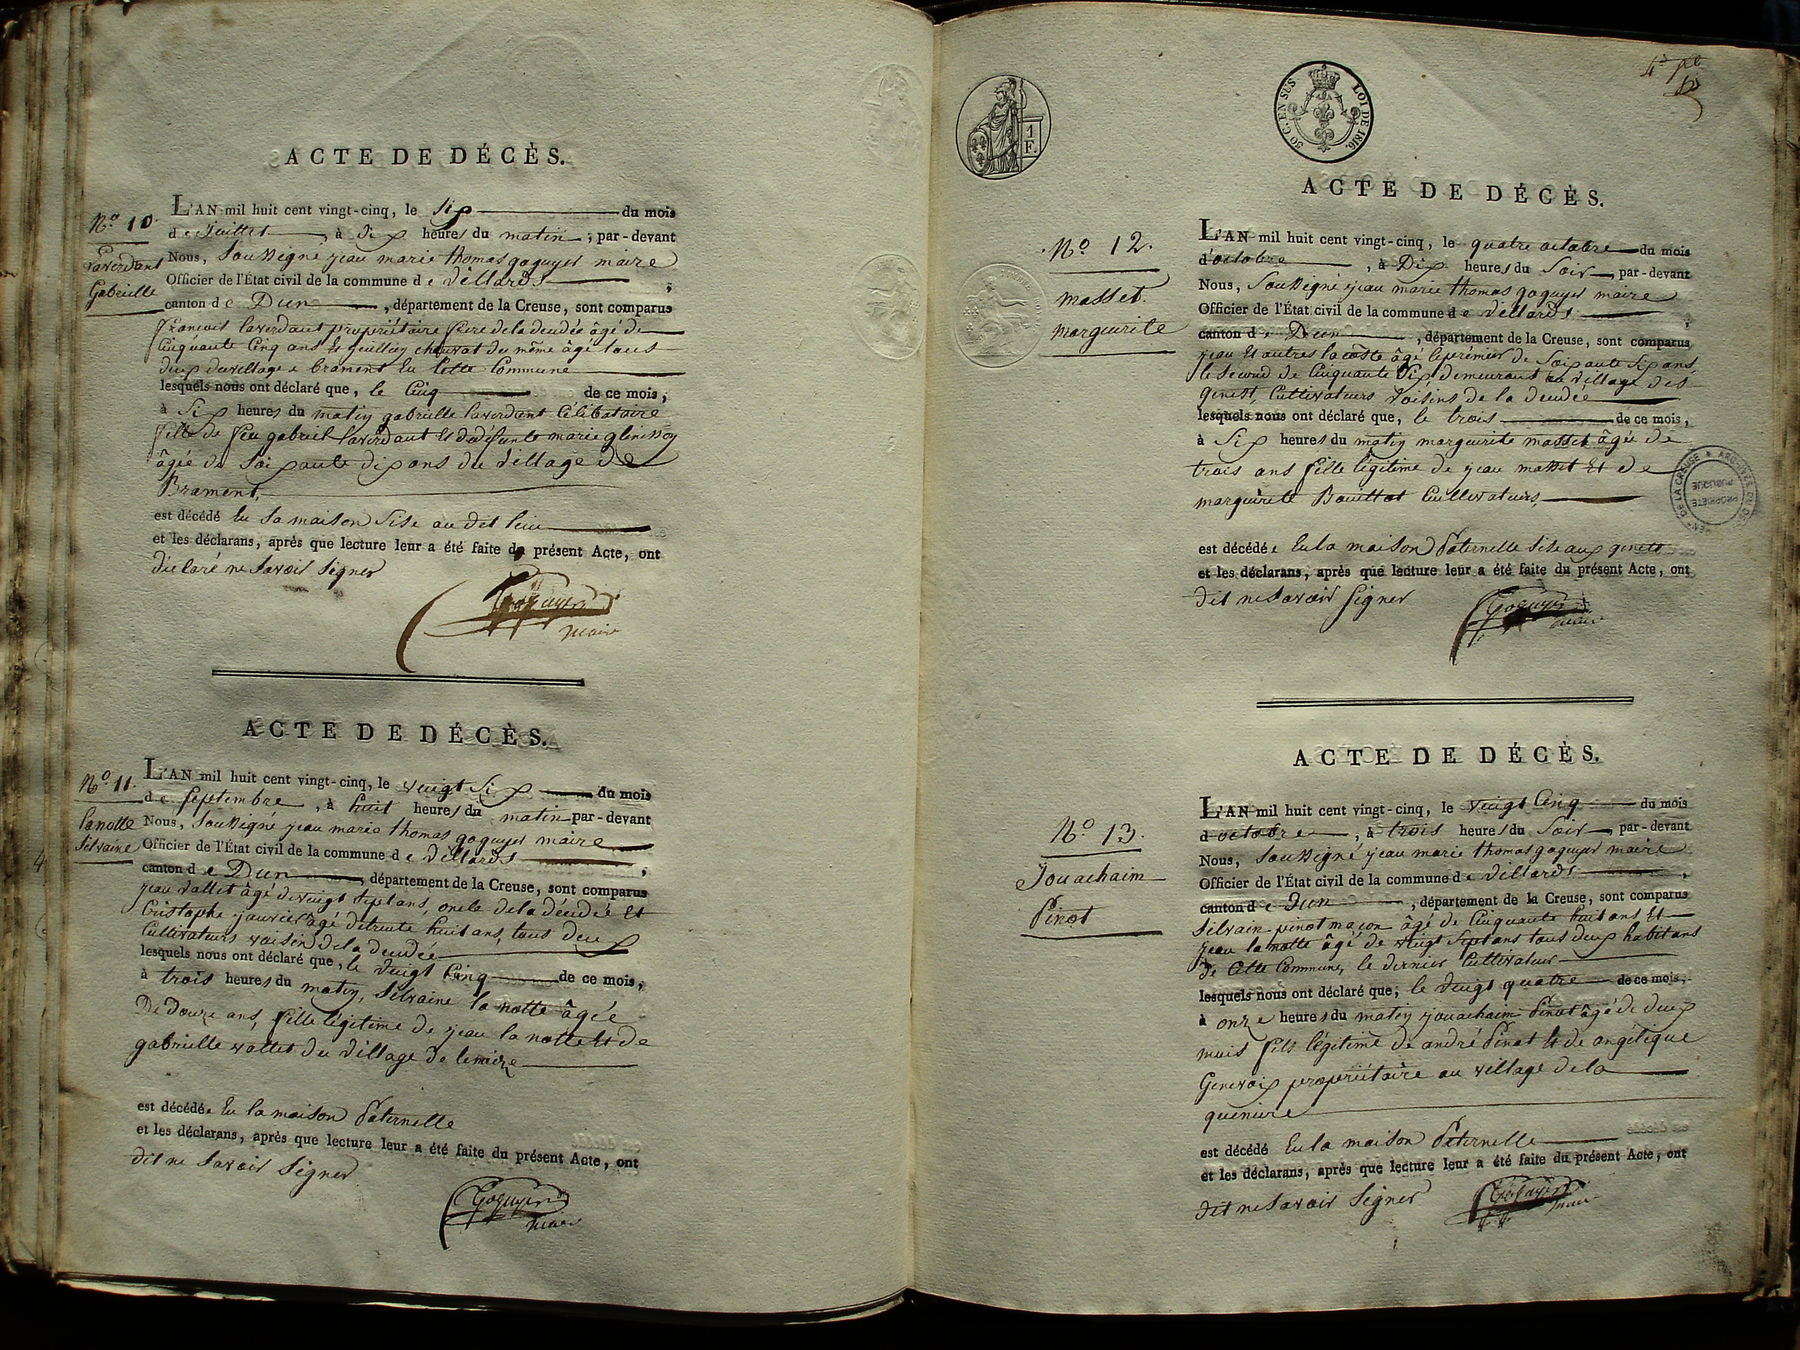 ACTE DE DÉCÈS.
N.o 10.
Laverdant
Gabrielle
L'AN mil huit cent vingt-cinq, le six du mois
de Juillet, à dix heures du matin, par-devant
Nous, soussigné jean marie thomas goguyer maire
Officier de l'État civil de la commune de Villards
canton de Dun, département de la Creuse, sont comparus
françois laverdant propriétaire frere de la deudée âgé de
Cinquante Cinq ans Et chauvat du même âgé tous
deux du village e brament En Cette Commune
lesquels nous ont déclaré que, le Cinq de ce mois,
à Six heures du matin gabrielle laverdant Célibataire
fille de feu gabriel laverdant Et dedéfunte marie
âgée de soixante dix ans du village de
Brament,
est décédé En sa maison sise au dit lieu
et les déclarans, après que lecture leur a été faite du présent Acte, ont
déclaré ne savoir signer
Goguyer
maire
ACTE DE DÉCÈS.
N.o 11.
lanotte
Silvaine
L'AN mil huit cent vingt-cinq, le vingt Six du mois
de Septembre, à huit heures du matin par-devant
Nous, soussigné jean marie thomas goguyer maire
Officier de l'État civil de la commune de Villards
canton de Dun, département de la Creuse, sont comparus
jean vallet âgé de vingt sept ans, oncle de la déeudée Et
Cristophe âgé de trente huit ans, tous deux
Cultivateurs voisin de la deudée
lesquels nous ont déclaré que, le vingt Cinq de ce mois,
à trois heures du matin, Silvaine la notte âgée
De douze ans, fille légitime de jean la notte Et de
gabrielle vallet du village de
est décédée En la maison Paternelle
et les déclarans, après que lecture leur a été faite du présent Acte, ont
dit ne savoir signer
Goguyer
maire
1 F.
50 C. EN SUS LOI DE 1816.
ACTE DE DÉCÈS.
N.o 12.
masset
marguerite
L'AN mil huit cent vingt-cinq, le quatre octobre du mois
d'octobre, à Dix heures du Soir, par-devant
Nous, soussigné jean marie thomas goguyer maire
Officier de l'État civil de la commune de Villards
canton de Dun, département de la Creuse, sont comparus
jean Et autres lacoste âgé le prémier de Soixante Six ans,
le second de Cinquante Six, demeurant au village des
genest, Cultivateurs Voisins de la deudée
lesquels nous ont déclaré que, le trois de ce mois,
à Six heures du matin marguerite masset âgée de
trois ans fille légitime de jean masset Et de
marguerite Bouttot Cultivateurs,
est décédée En la maison Paternelle sise aux genets
et les déclarans, après que lecture leur a été faite du présent Acte, ont
dit ne savoir signer
Goguyer
maire
ARCHIVES DEPARTEM. DE LA CREUSE
PROPRIETE PUBLIQUE
ACTE DE DÉCÈS.
N.o 13.
Jouachaim
Pinot
L'AN mil huit cent vingt-cinq, le vingt Cinq du mois
d'octobre, à trois heures du Soir, par-devant
Nous, soussigné jean marie thomas goguyer maire
Officier de l'État civil de la commune de Villards
canton de Dun, département de la Creuse, sont comparus
silvain pinot maçon âgé de Cinquante huit ans Et
jean la notte âgé de vingt sept ans tous deux habitans
de Cette Commune, le dernier Cultivateur
lesquels nous ont déclaré que, le vingt quatre de ce mois,
à onze heures du matin jouachaim Pinot âgé de deux
mois fils légitime de andré Pinot Et de angélique
Genevoix propriétaire au village de la
quenivre
est décédé En la maison Paternelle
et les déclarans, après que lecture leur a été faite du présent Acte, ont
dit ne savoir signer
Goguyer
maire